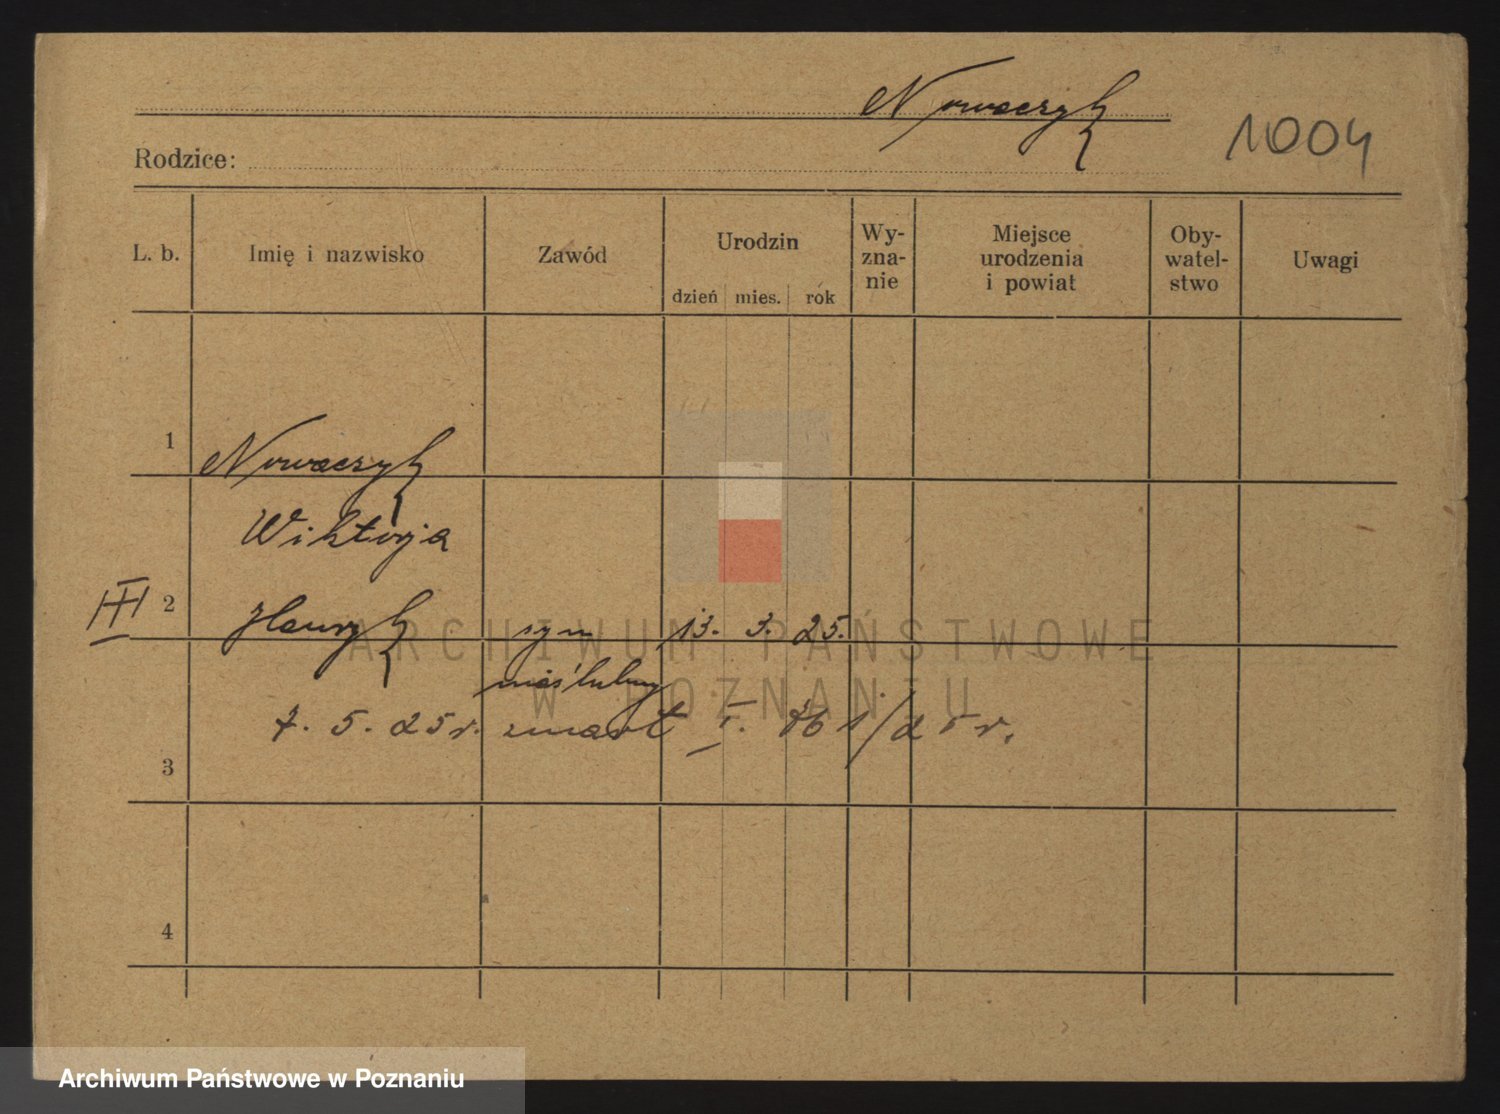 Nowaczyk
1004
Rodzice:
L. b. Imię i nazwisko Zawód Urodzin Wy-zna-nie Miejsce urodzenia i powiat Oby-watel-stwo Uwagi
dzień mies. rok
1 Nowaczyk
Wiktorja
III 2 Henryk syn 13. 3. 25.
nieślubny
7. 5. 25 r. zmarł I. 761/25 r.
3
4
ARCHIWUM PAŃSTWOWE
W POZNANIU
Archiwum Państwowe w Poznaniu